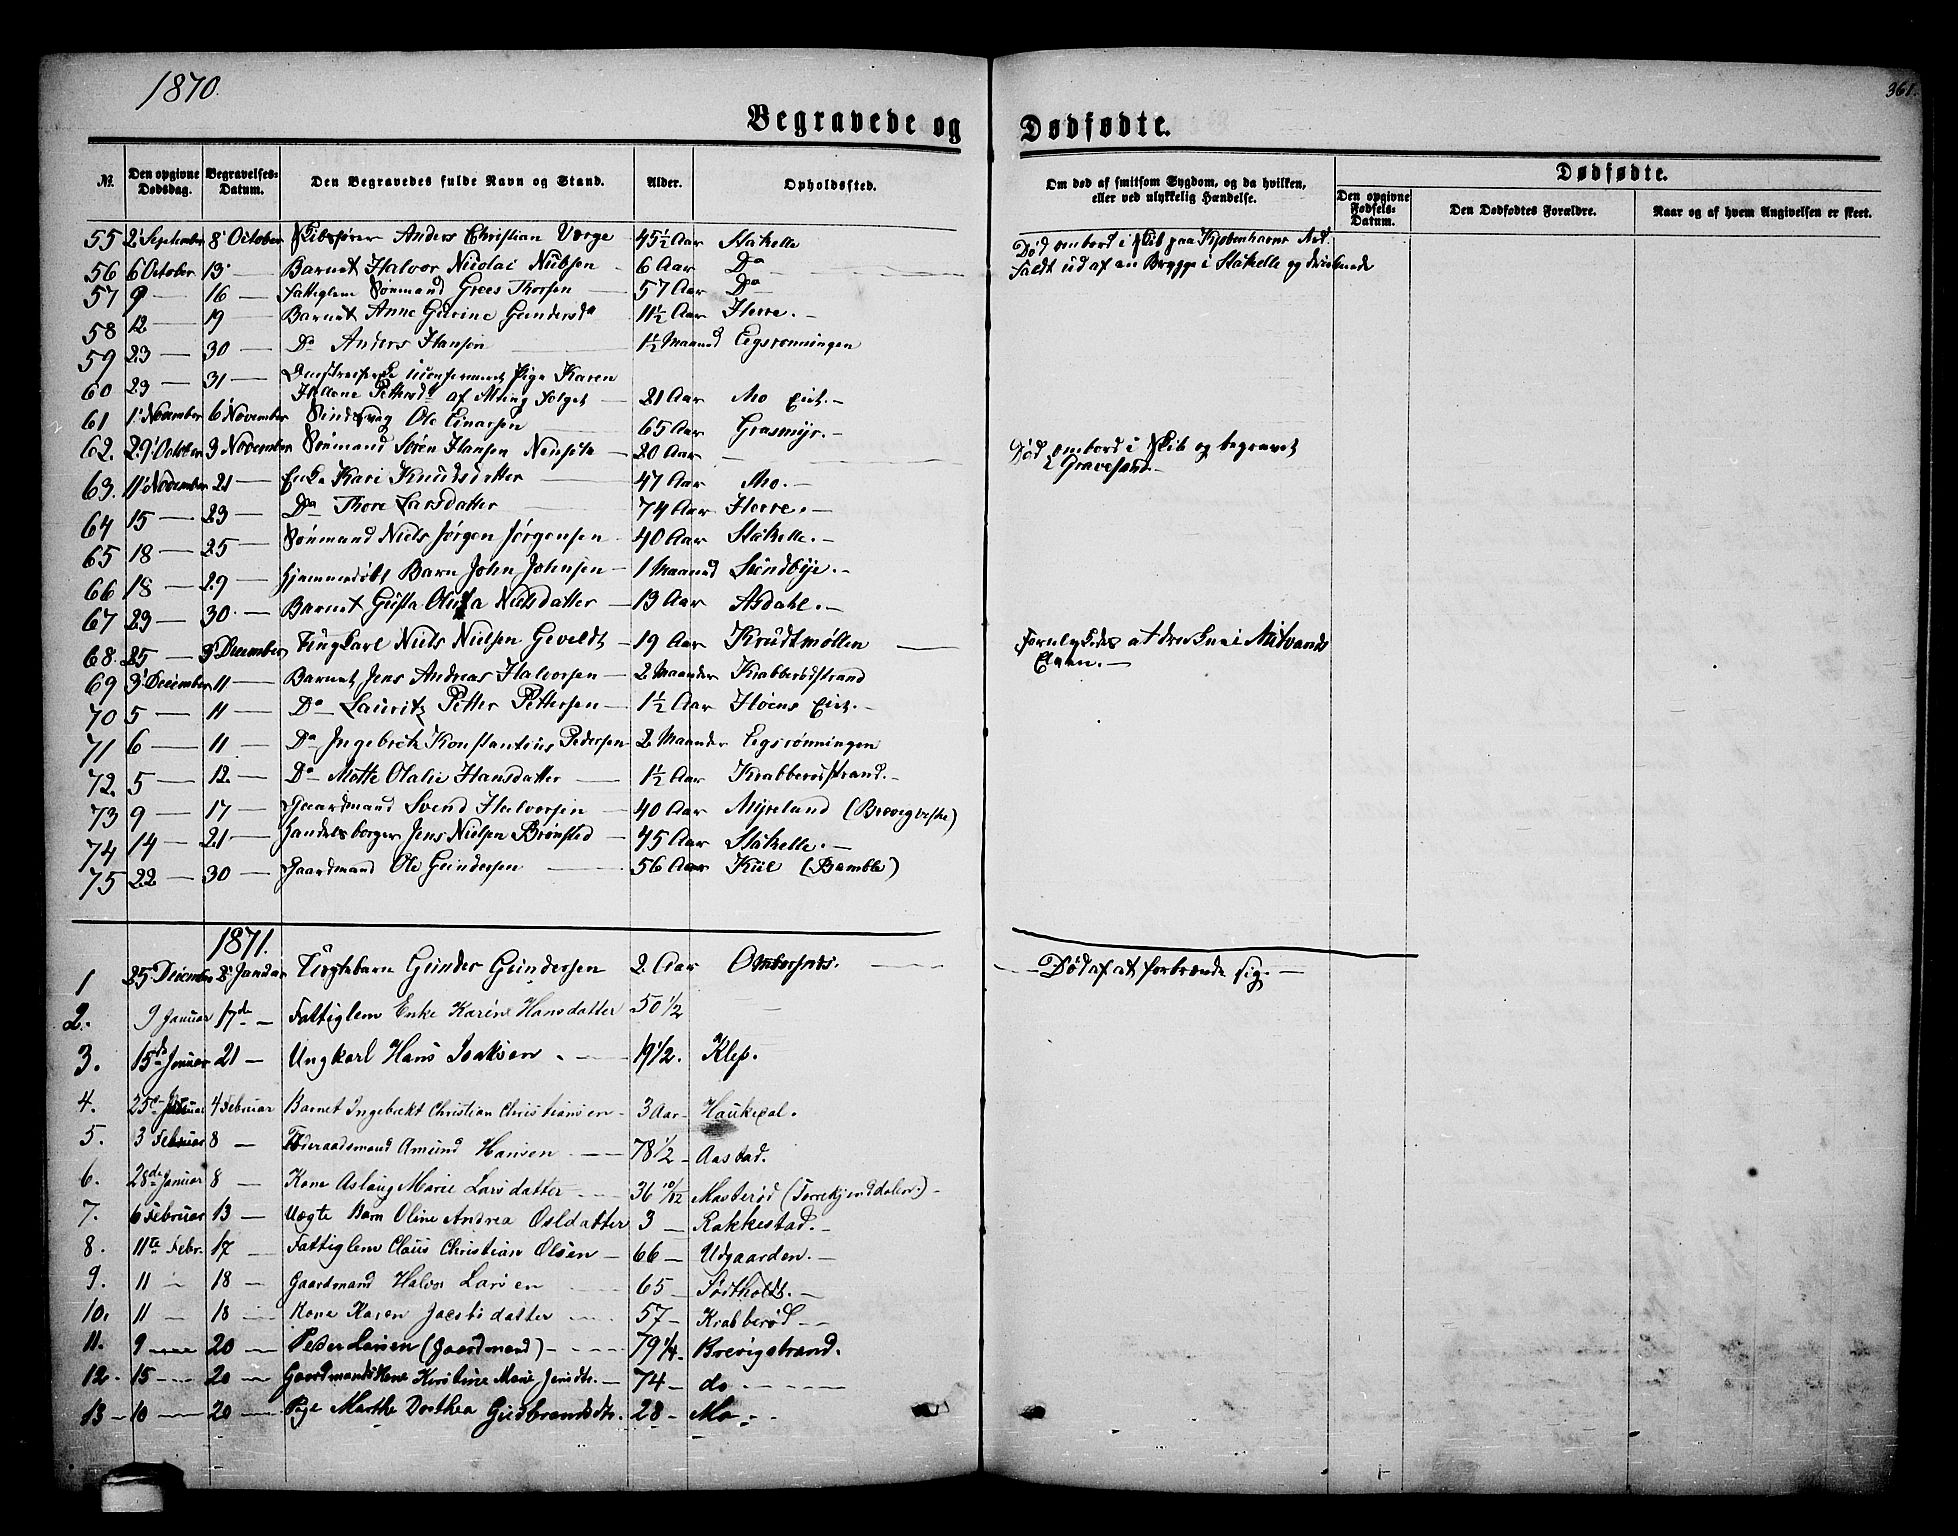 1870.
361.
Begravede og Dødfødte.
No. Den opgivne Dødsdag. Begravelses-Datum. Den Begravedes fulde Navn og Stand. Alder. Opholdssted. Om død af smitsom Sygdom, og da hvilken, eller ved ulykkelig Hændelse. Dødfødte. Den opgivne Fødsels-Datum. Den Dødfødtes Forældre. Naar og af hvem Angivelsen er skeet.
55 2 September 8 October Skibsfører Anders Christian Værge 45½ Aar Stathelle Død ombord i Skib paa Kjøbenhavns
56 6 October 13 — Barnet Halvor Nicolai Nielsen 6 Aar Do Faldt ud af en Brygge i Stathelle og druknede
57 9 — 16 — Fattiglem Sømand Thorsen 57 Aar Do
58 12 — 19 — Barnet Anne Gurine Gundersd 11½ Aar Herre.
59 23 — 30 — Do Anders Hansen 1½ Maaned Eegsrønningen
60 23 — 31 — Pige Karen
Pettersd af Følget 21 Aar Mo Eiet.
61 1 November 6 November Ole Einarsen 65 Aar Grasmyr.
62. 29 October 3 November Sømand Søren Hansen 20 Aar — Død ombord i Skib og begravet
i Gravesend.
63. 11 November 21 — Enke Kari Knudsdatter 47 Aar Mo.
64 15 — 23 — Do Thore Larsdatter 74 Aar Herre.
65 18 — 25 — Sømand Niels Jørgen Jørgensen 40 Aar Stathelle.
66 18 — 29 — Hjemmedøbt Barn John Johnsen 1 Maaned Sundbye.
67 23 — 30 — Barnet Gusta Nielsdatter 13 Aar Asdahl.
68. 25 — 3 December Ungkarl Niels Nielsen 19 Aar Krudtmøllen Forulykkedes at drukne i
Elven.
69 3 December 11 — Barnet Jens Andreas Halvorsen 2 Maaneder Krabberødstrand
70 5 — 11 — Do Lauritz Petter Pettersen 1½ Aar Eiet.
71 6 — 11 — Do Ingebret Konstantius Pedersen 2 Maaneder Eegsrønningen
72. 5 — 12. — Do Mette Olalie Hansdatter 1½ Aar Krabberødstrand.
73 9 — 17 — Gaardmand Svend Halvorsen 40 Aar Myreland (
74 14 — 21 — Handelsborger Jens Nielsen Brønsted 45 Aar Stathelle.
75 22 — 30 — Gaardmand Ole Gundersen 56 Aar (Bamble)
1871.
1 25 December 8 Januar Gunder Gundersen 2 Aar Død af at forbrænde sig.
2. 9 Januar 17de Fattiglem Enke Karine Hansdatter 50 1/2
3. 15de Januar 21 — Ungkarl Hans Isaksen 19 1/2. Klep.
4. 25 Januar 4 Februar Barnet Ingebrekt Christian Christiansen 3 Aar Haukedal.
5. 3 Februar 8 — Føderaadsmand Amund Hansen 78 1/2 Aastad.
6. 28de Januar 8 — Kone Aslaug Marie Larsdatter 36 10/12 Masterød (
7. 6 Februar 13 — Uægte Barn Oline Andrea Osldatter 3 — Rakkestad.
8. 11te Febr. 17 — Fattiglem Claus Christian Olsen 66 — Udgaarden.
9. 11 — 18 — Gaardmand Halvor Larsen 65 — Sortholdt.
10. 11 — 18 — Kone Karen Jacobsdatter 57 — Krabberød
11. 9 — 20 — Peder Larsen (Gaardmand) 79 1/4 Brevigstrand.
12. 15 — 20 — Gaardmandskone Kirstine Marie Jensdtr. 74 — do.
13 — 10 — 20 — Pige Marthe Dorthea Gudbrandsdtr. 28 — Mo